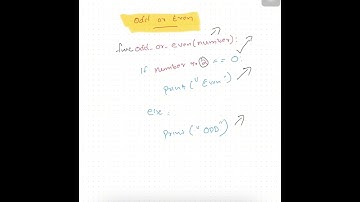 Odd or Even
func odd_or_even(number):
If number % 2 == 0:
print("Even")
else:
print("ODD")